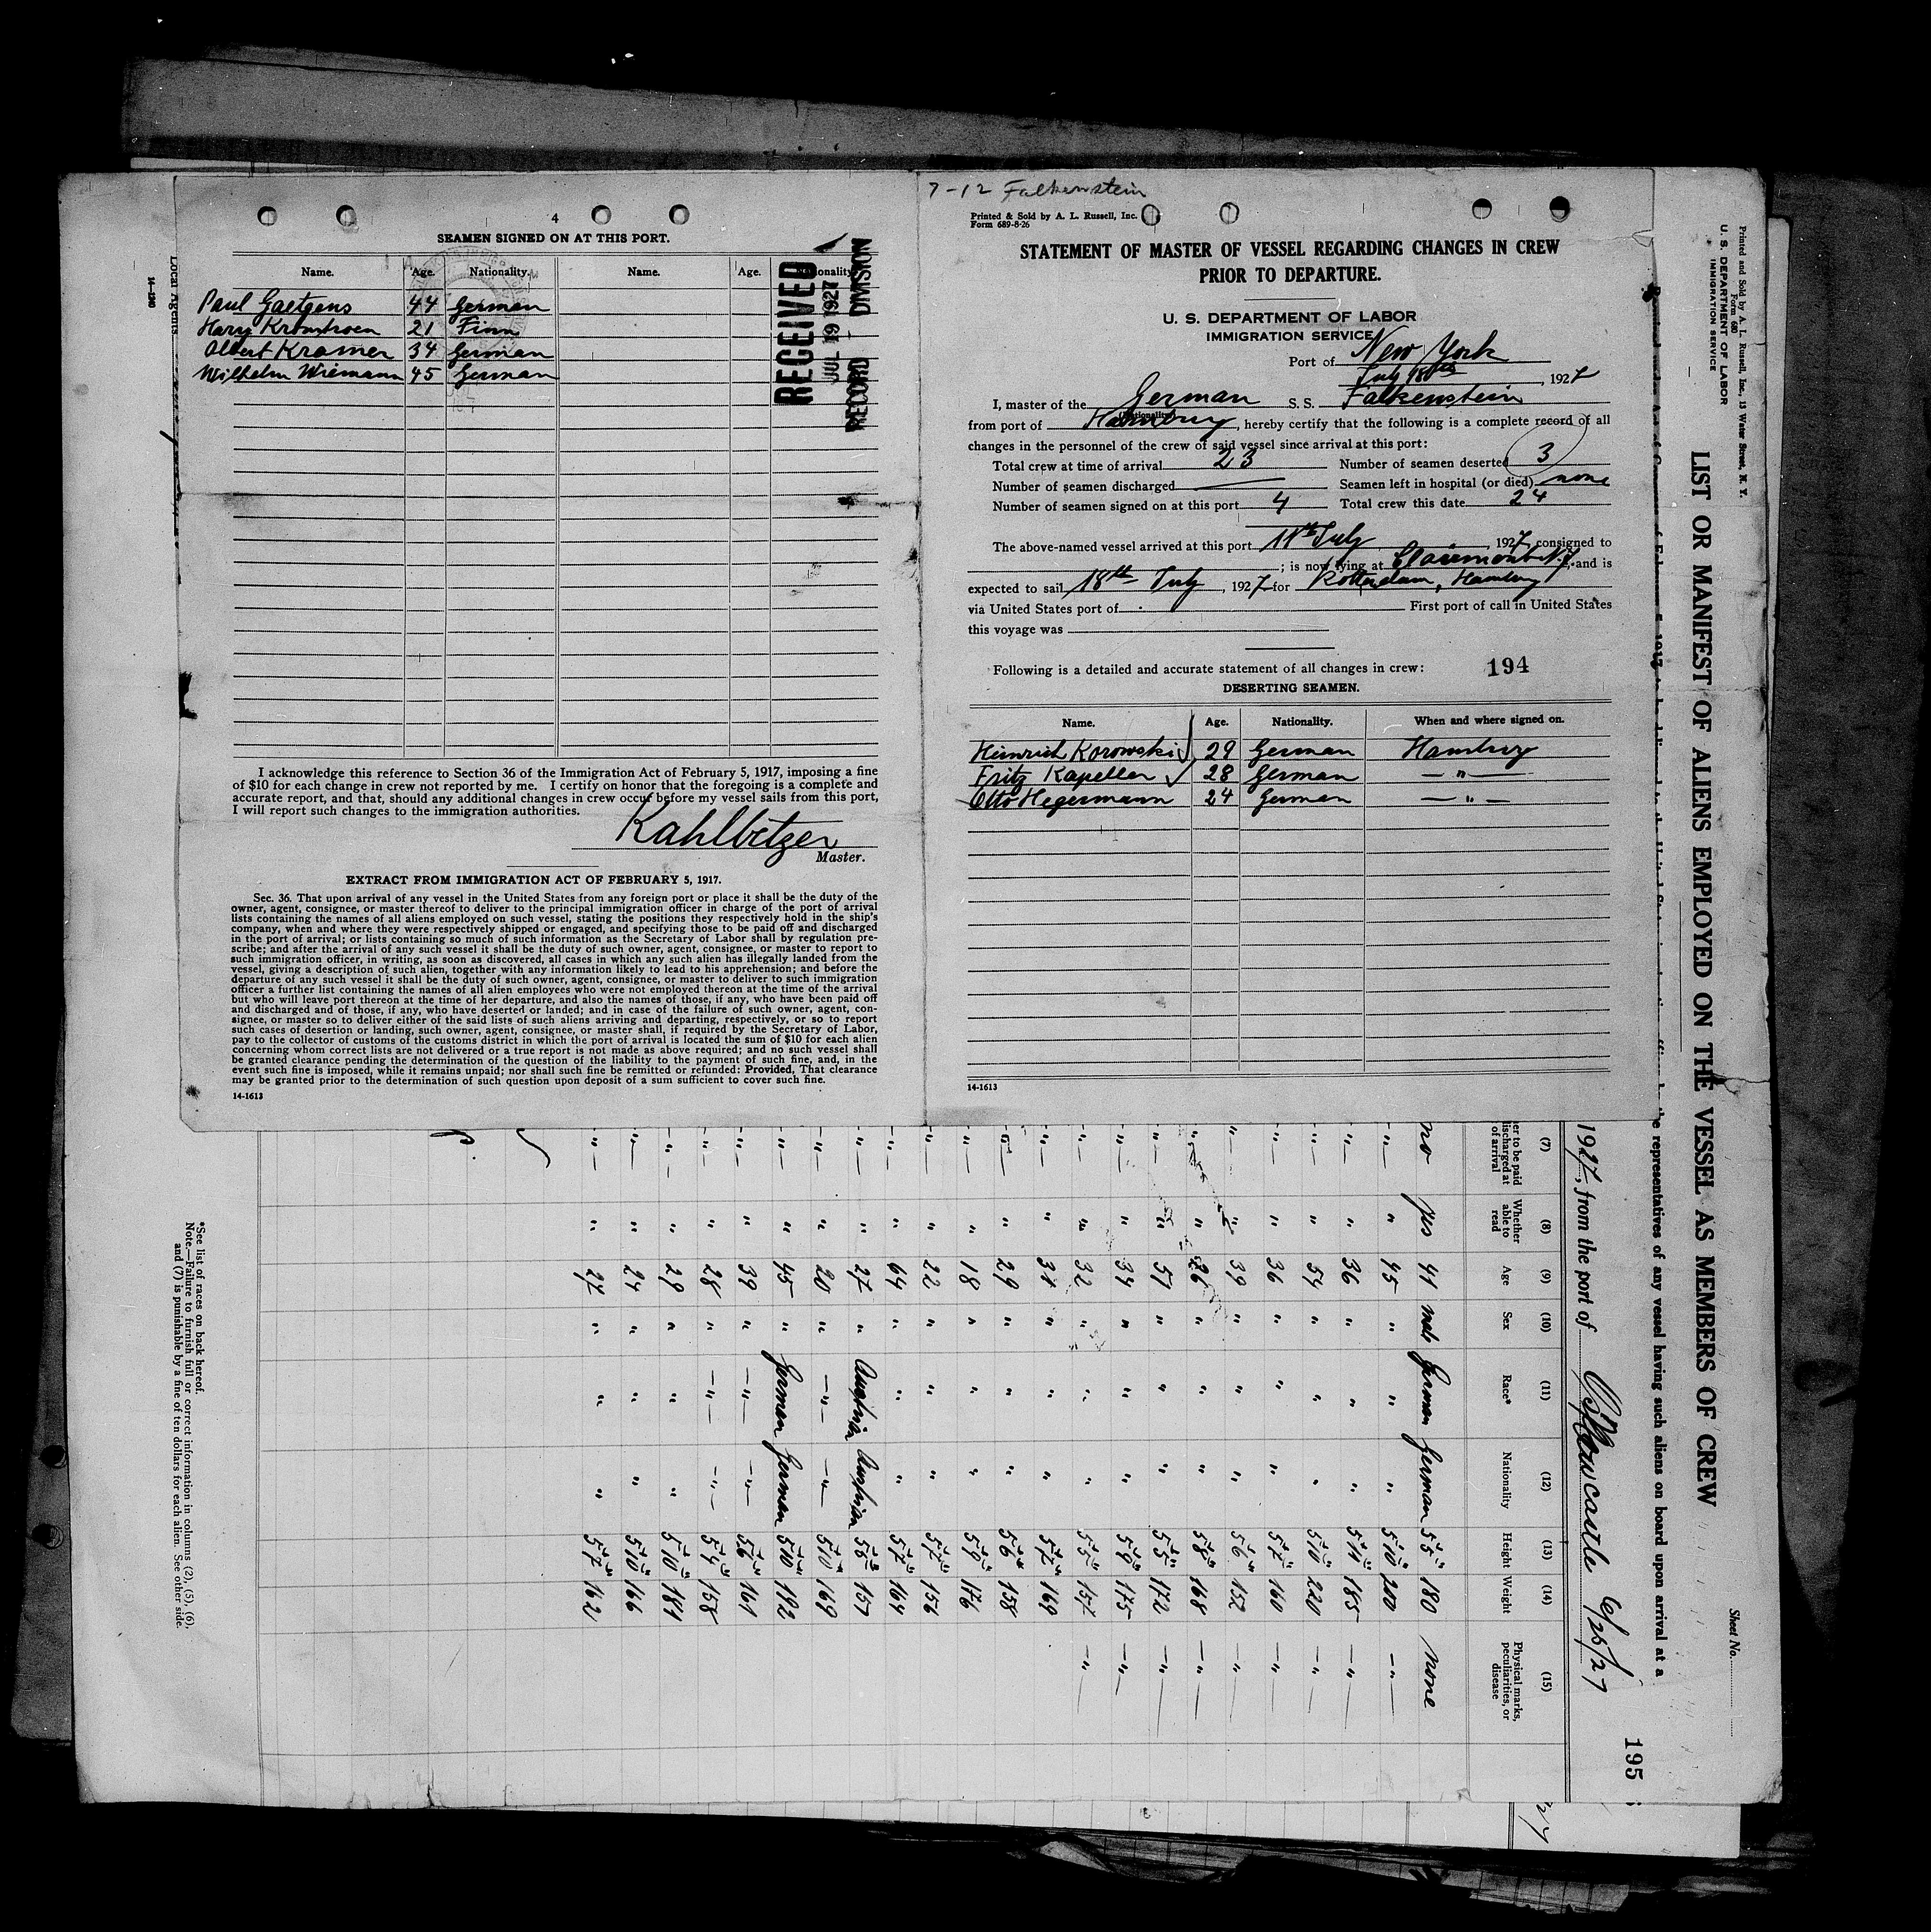 7-12 Falkenstein
4
SEAMEN SIGNED ON AT THIS PORT.
Name. Age. Nationality. Name. Age. Nationality.
Paul Gaetgens 44 German
Hary 21 Finn
Albert Kramer 34 German
Wilhelm Wiemann 45 German
RECEIVED
JUL 19 1927
RECORD DIVISION
I acknowledge this reference to Section 36 of the Immigration Act of February 5, 1917, imposing a fine
of $10 for each change in crew not reported by me. I certify on honor that the foregoing is a complete and
accurate report, and that, should any additional changes in crew occur before my vessel sails from this port,
I will report such changes to the immigration authorities.
Kahlbitzer
Master.
EXTRACT FROM IMMIGRATION ACT OF FEBRUARY 5, 1917.
Sec. 36. That upon arrival of any vessel in the United States from any foreign port or place it shall be the duty of the
owner, agent, consignee, or master thereof to deliver to the principal immigration officer in charge of the port of arrival
lists containing the names of all aliens employed on such vessel, stating the positions they respectively hold in the ship's
company, when and where they were respectively shipped or engaged, and specifying those to be paid off and discharged
in the port of arrival; or lists containing so much of such information as the Secretary of Labor shall by regulation pre-
scribe; and after the arrival of any such vessel it shall be the duty of such owner, agent, consignee, or master to report to
such immigration officer, in writing, as soon as discovered, all cases in which any such alien has illegally landed from the
vessel, giving a description of such alien, together with any information likely to lead to his apprehension; and before the
departure of any such vessel it shall be the duty of such owner, agent, consignee, or master to deliver to such immigration
officer a further list containing the names of all alien employees who were not employed thereon at the time of the arrival
but who will leave port thereon at the time of her departure, and also the names of those, if any, who have been paid off
and discharged and of those, if any, who have deserted or landed; and in case of the failure of such owner, agent, con-
signee, or master so to deliver either of the said lists of such aliens arriving and departing, respectively, or so to report
such cases of desertion or landing, such owner, agent, consignee, or master shall, if required by the Secretary of Labor,
pay to the collector of customs of the customs district in which the port of arrival is located the sum of $10 for each alien
concerning whom correct lists are not delivered or a true report is not made as above required; and no such vessel shall
be granted clearance pending the determination of the question of the liability to the payment of such fine, and, in the
event such fine is imposed, while it remains unpaid; nor shall such fine be remitted or refunded: Provided, That clearance
may be granted prior to the determination of such question upon deposit of a sum sufficient to cover such fine.
14-1613
Printed & Sold by A. L. Russell, Inc.
Form 689-8-26
STATEMENT OF MASTER OF VESSEL REGARDING CHANGES IN CREW
PRIOR TO DEPARTURE.
U. S. DEPARTMENT OF LABOR
IMMIGRATION SERVICE
Port of New York
July 18th, 1927
I, master of the German S. S. Falkenstein
(Nationality)
from port of Hamburg, hereby certify that the following is a complete record of all
changes in the personnel of the crew of said vessel since arrival at this port:
Total crew at time of arrival 23 Number of seamen deserted 3
Number of seamen discharged — Seamen left in hospital (or died) none
Number of seamen signed on at this port 4 Total crew this date 24
The above-named vessel arrived at this port 11th July, 1927, consigned to
; is now lying at Claremont N.J., and is
expected to sail 18th July, 1927 for Rotterdam, Hamburg
via United States port of First port of call in United States
this voyage was
Following is a detailed and accurate statement of all changes in crew: 194
DESERTING SEAMEN.
Name. Age. Nationality. When and where signed on.
Heinrich Korowski 29 German Hamburg
Fritz Kapeller 28 German — " —
Otto Hegermann 24 German — " —
14-1613
Printed and Sold by A. L. Russell, Inc., 13 Water Street, N. Y.
Form 680
U. S. DEPARTMENT OF LABOR
IMMIGRATION SERVICE
Sheet No.
LIST OR MANIFEST OF ALIENS EMPLOYED ON THE VESSEL AS MEMBERS OF CREW
195
the representatives of any vessel having such aliens on board upon arrival at a
1927, from the port of Newcastle 6/25/27
(7) (8) (9) (10) (11) (12) (13) (14) (15)
er to be paid discharged at of arrival Whether able to read Age Sex Race* Nationality Height Weight Physical marks, peculiarities, or disease
no yes 41 male German German 5'5" 180 none
— " — " 45 " " " 5'10" 200 — " —
— " — " 36 " " " 5'11" 185 — " —
— " — " 54 " " " 5'10" 220 — " —
— " — " 36 " " " 5'7" 160 — " —
— " — " 39 " " " 5'6" 152 — " —
— " — " 26 " " " 5'8" 168 — " —
— " — " 51 " " " 5'5" 172 — " —
— " — " 34 " " " 5'9" 175 — " —
— " — " 32 " " " 5'5" 157 — " —
— " — " 31 " " " 5'7" 169
— " — " 29 " " " 5'6" 158
— " — " 18 " " " 5'9" 176
— " — " 22 " " " 5'7" 156
— " — " 64 " " " 5'7" 164
— " — " 27 " Austrian Austrian 5'6" 157
— " — " 20 " — " — — " — 5'10" 169
— " — " 45 " German German 5'10" 192
— " — " 39 " — " — — " — 5'6" 161
— " — " 28 " — " — — " — 5'4" 158
— " — " 29 " " " 5'10" 181
— " — " 24 " " " 5'10" 166
— " — " 27 " " " 5'7" 162
*See list of races on back hereof.
Note.—Failure to furnish full or correct information in columns (2), (5), (6),
and (7) is punishable by a fine of ten dollars for each alien. See other side.
Local Agents
14-1240